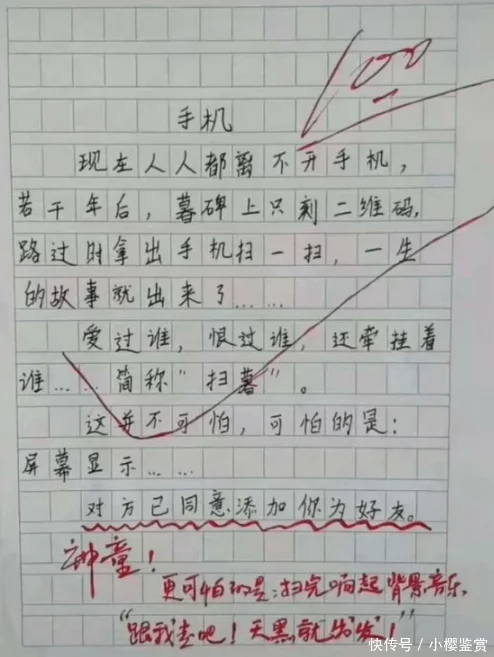 100
手机
现在人人都离不开手机，
若干年后，暮碑上只刻二维码，
路过时拿出手机扫一扫，一生
的故事就出来了……
爱过谁，恨过谁，还牵挂着
谁……简称“扫暮”。
这并不可怕，可怕的是：
屏幕显示……
对方已同意添加你为好友。
神童！
更可怕的是：扫完响起背景音乐，
“跟我走吧！天黑就出发！”
快传号／小樱鉴赏